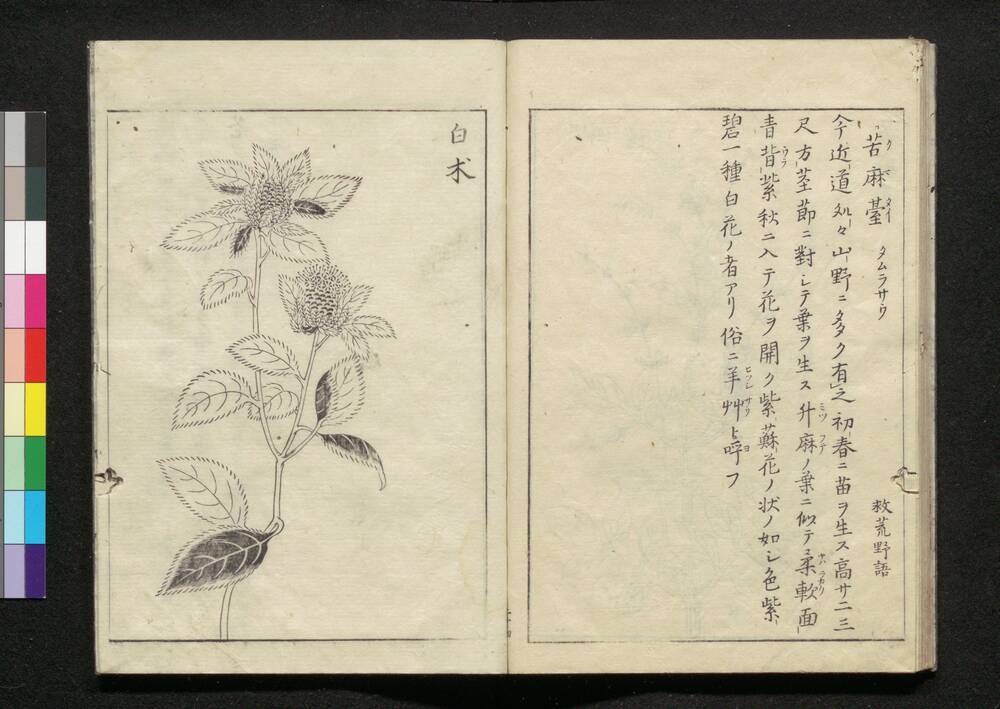 苦麻臺 タムラサウ 救荒野語
今近道処々山野ニ多ク有之初春ニ苗ヲ生ス高サ二三
尺方茎節ニ對シテ葉ヲ生ス升麻ノ葉ニ似テ柔軟面
青背紫秋ニ入テ花ヲ開ク紫蘇花ノ状ノ如シ色紫
碧一種白花ノ者アリ俗ニ羊艸ト呼フ
白朮